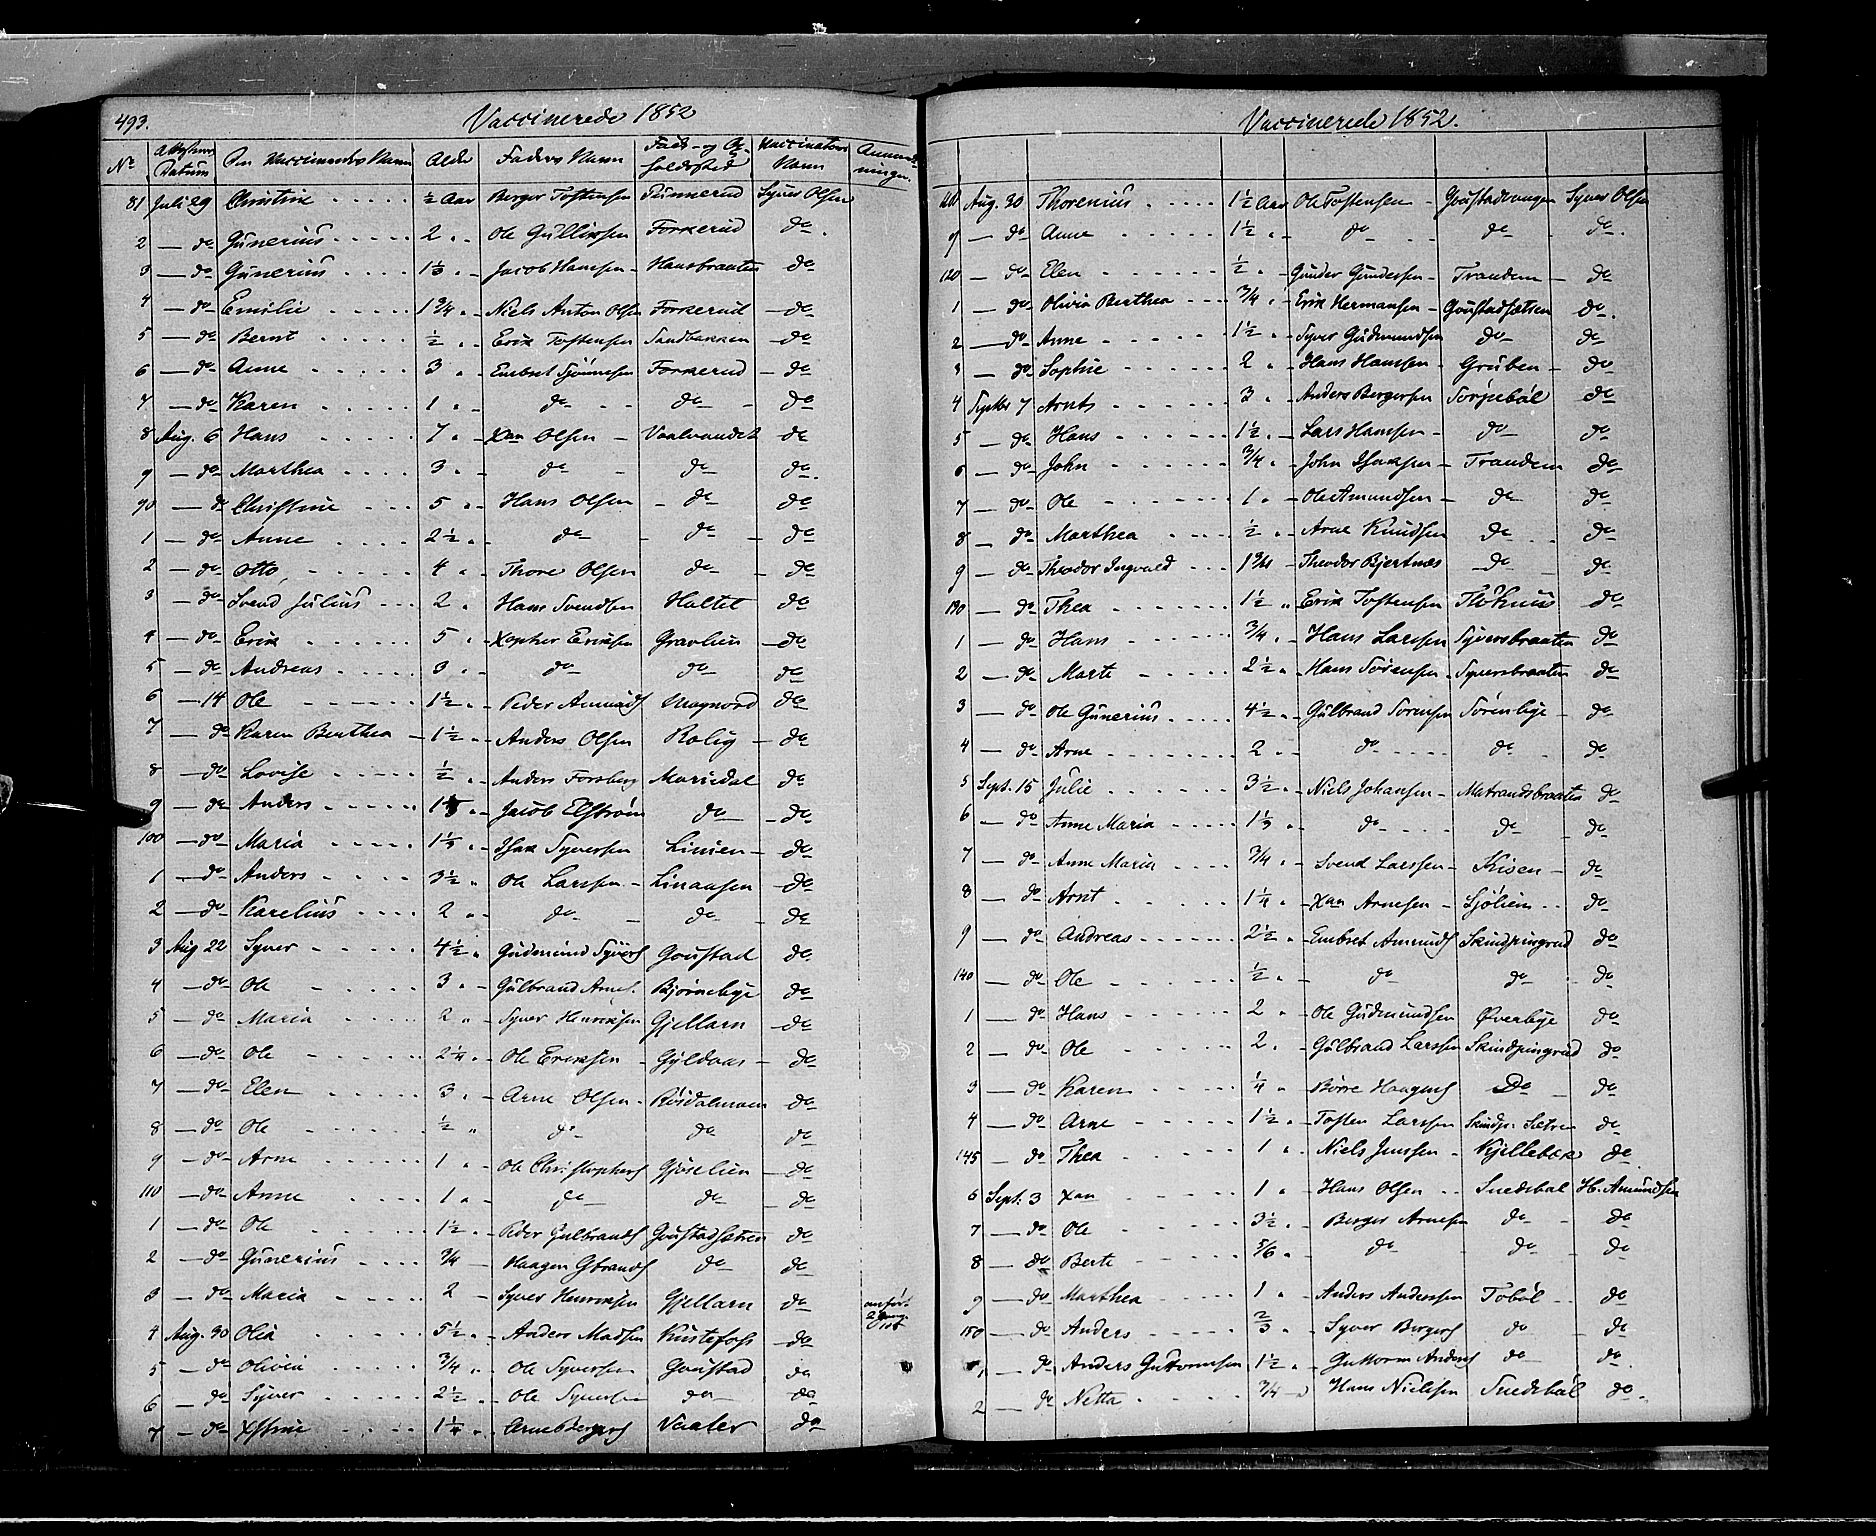 493.
Vaccinerede 1852
No Attestens Datum Den Vaccineredes Navn Alder Faders Navn Føde- og Opholdssted Vaccinateurs Navn Anmærkninger
81 Juli 29 Christine ½ Aar Berger Tostensen Syver Olsen
2 — do Gunerius 2 " Ole Gulliksen Forkerud do
3 — do Gunerius 1⅓ " Jacob Hansen Hansbraaten do
4 — do Emilie 1¾ " Niels Anton Olsen Forkerud do
5 — do Bernt ½ " Erik Tostensen Sandbakken do
6 — do Anne 3 " Embret Forkerud do
7 — do Karen 1 " do do do
8 Aug. 6 Hans 7 " Xan Olsen Vaalvandet do
9 — do Marthea 3 " do do do
90 — do Christine 5 " Hans Olsen do do
1 — do Anne 2½ " do do do
2 — do Otto 4 " Thore Olsen do do
3 — do Svend Julius 2 " Hans Svendsen Holtet do
4 — do Erik 5 " Xopher Eriksen Gravlien do
5 — do Andreas 3 " do do do
6 — 14 Ole 1½ " Peder Amunds Magnord do
7 — do Karen Berthea 1½ " Anders Olsen Rolig do
8 — do Lovise ½ " Anders Forsberg Mariedal do
9 — do Anders Jacob Elfström do do
100 — do Maria 1⅓ " Isak Syversen Linien do
1 — do Anders 3½ " Ole Larssen Linaasen do
2 — do Karelius 2 " do do do
3 Aug 22 Syver 4½ " Gudmund Syvers Goustad do
4 — do Ole 3 " Gulbrand Arnes. Bjørnebye do
5 — do Maria 2 " Syver Henriksen Gjellarn do
6 — do Ole 2¼ " Ole Eriksen Gyldaas do
7 — do Elen 3 " Arne Olsen Rösdalmoen do
8 — do Ole ½ " do do do
9 — do Arne 1 " Ole Christophers Gjöselien do
110 — do Anne 1 " do do do
1 — do Ole 1½ " Peder Gulbrands Goustadsætren do
2 — do Gunerius ¾ Haagen Gbrands do do
3 — do Maria 2 Syver Henriksen Gjellarn do anført
4 Aug. 30 Olea 5½ " Anders Madsen Kustefoss do
5 — do Olivia ¾ " Ole Syversen Goustad do
6 — do Syver 2½ " Ole Syversen do do
7 — do Xstine 1¼ " Arne Bergers Vaaler do
Vaccinerede 1852.
118 Aug. 30 Thorenius 1½ Aar Ole Tostensen Goustadvangen Syver Olsen
9 — do Anne 1½ " do do do
120 — do Elen ½ " Gunder Gundersen Trandem do
1 — do Olivia Berthea ¾ " Erik Hermansen Goustadsætren do
2 — do Anne 1½ " Syver Gudmundsen do do
3 — do Sophie 2 " Hans Hansen Gruben do
4 Septbr 7 Arnts 3 " Anders Bergersen Torjebøl do
5 — do Hans 1½ " Lars Hansen do do
6 — do John ¾ " John Isaksen Trandem do
7 — do Ole 1 " Ole Amundsen do do
8 — do Marthea ½ " Arne Knudsen do do
9 — do Theodor Ingvald 1¾ Theodor Bjertnæs do do
130 — do Thea 1½ " Erik Tostensen do
1 — do Hans ¾ " Hans Larssen Syversbraaten do
2 — do Marte 2½ " Hans Sørensen Syversbraaten do
3 — do Ole Gunerius 4½ " Gulbrand Sorensen Sörenbye do
4 — do Arne 2 " do do do
5 Sept. 15 Julie 3½ " Niels Johansen Matrandsbraaten do
6 — do Anne Maria 1⅓ " do do do
7 — do Anne Maria ¾ " Svend Larssen Kisen do
8 — do Arnt 1¼ " Xan Arnesen Sjölien do
9 — do Andreas 2½ " Embret Amunds Skindpungrud do
140 — do Ole ½ " do do do
1 — do Hans 2 " Ole Gudmundsen Øverbye do
2 — do Ole 2 " Gulbrand Larssen Skindpungrud do
3 — do Karen ¼ " Börre Haagens Do do
4 — do Arne 1½ " Tosten Larssen Skindp: Sætre do
145 — do Thea 1 " Niels Jenssen Kjellebæk do
6 Sept. 3 Xan 1 " Hans Olsen Snedsbøl H. Amundsen
7 — do Ole 3½ " Berger Arnesen do do
8 — do Berte 5/6 " do do do
9 — do Marthea 1 " Anders Anderssen Tobøl do
150 — do Anders ⅔ " Syver Bergers do do
1 — do Anders Guttormsen 1½ " Guttorm Anders do do
2 — do Netta ¾ " Hans Nielsen Snedsbøl do